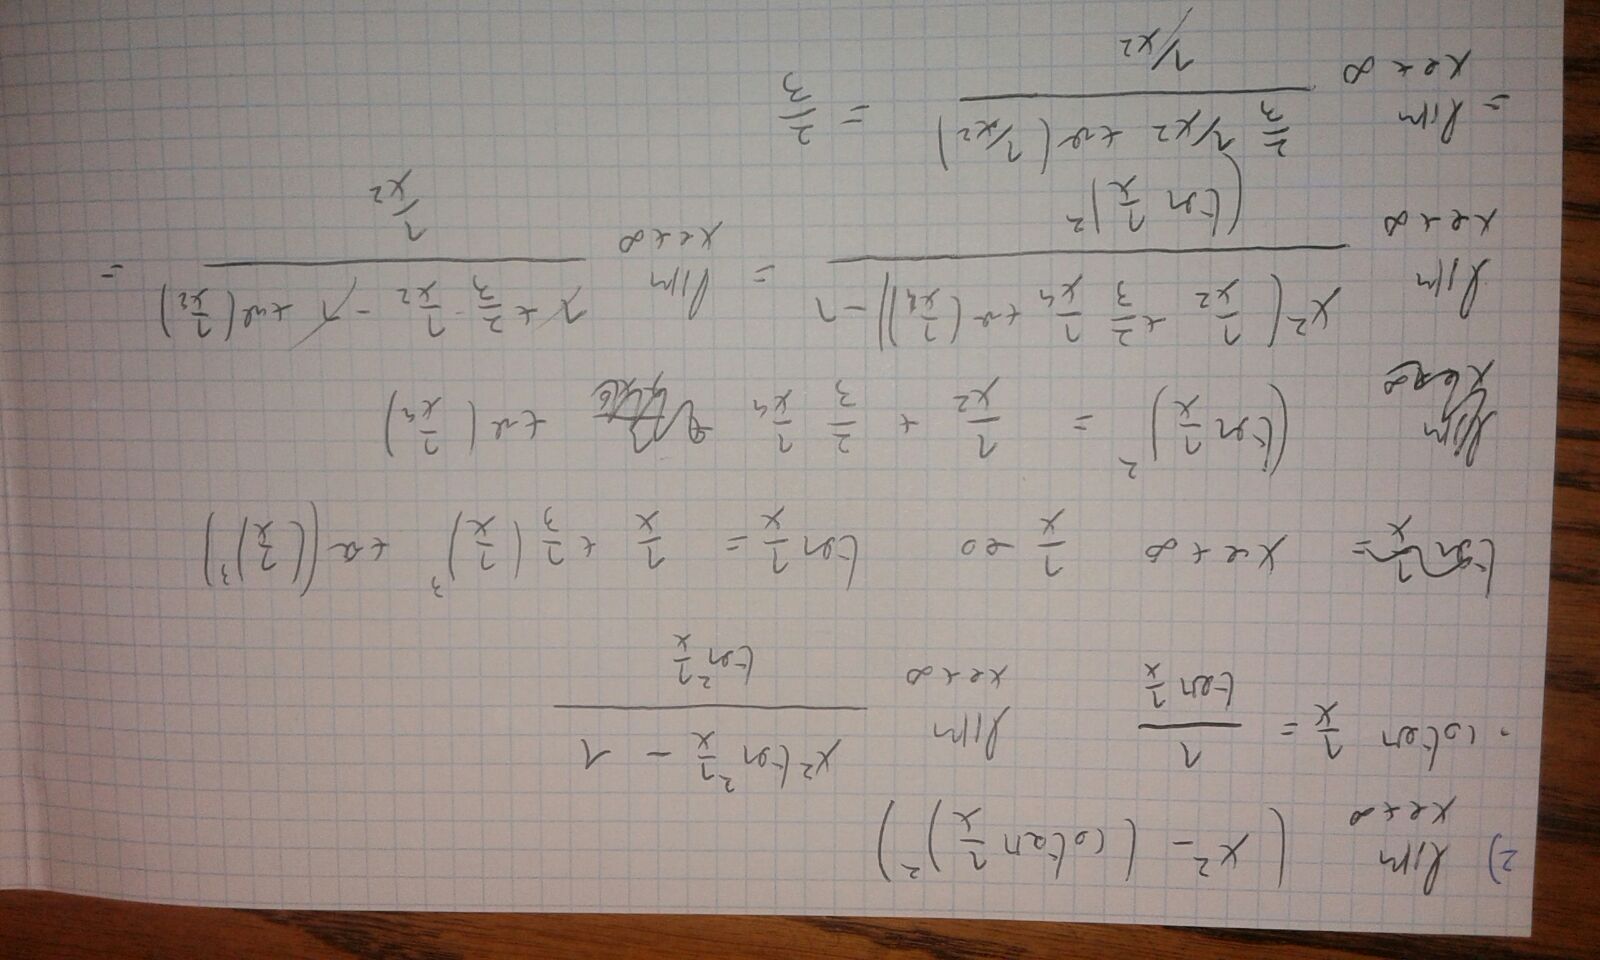 2) lim x→+∞ (x² - (cotan 1/x)²)
· cotan 1/x = 1/(tan 1/x) lim x→+∞ (x² tan² 1/x - 1)/(tan² 1/x)
x→+∞ 1/x →0 tan 1/x = 1/x + 1/3 (1/x)³ + o((1/x)³)
(tan 1/x)² = 1/x² + 2/3 1/x⁴ + o(1/x⁴)
lim x→+∞ (x²(1/x² + 2/3 1/x⁴ + o(1/x⁴)) - 1)/((tan 1/x)²) = lim x→+∞ (1 + 2/3 · 1/x² - 1 + o(1/x²))/(1/x²) =
= lim x→+∞ (2/3 1/x² + o(1/x²))/(1/x²) = 2/3